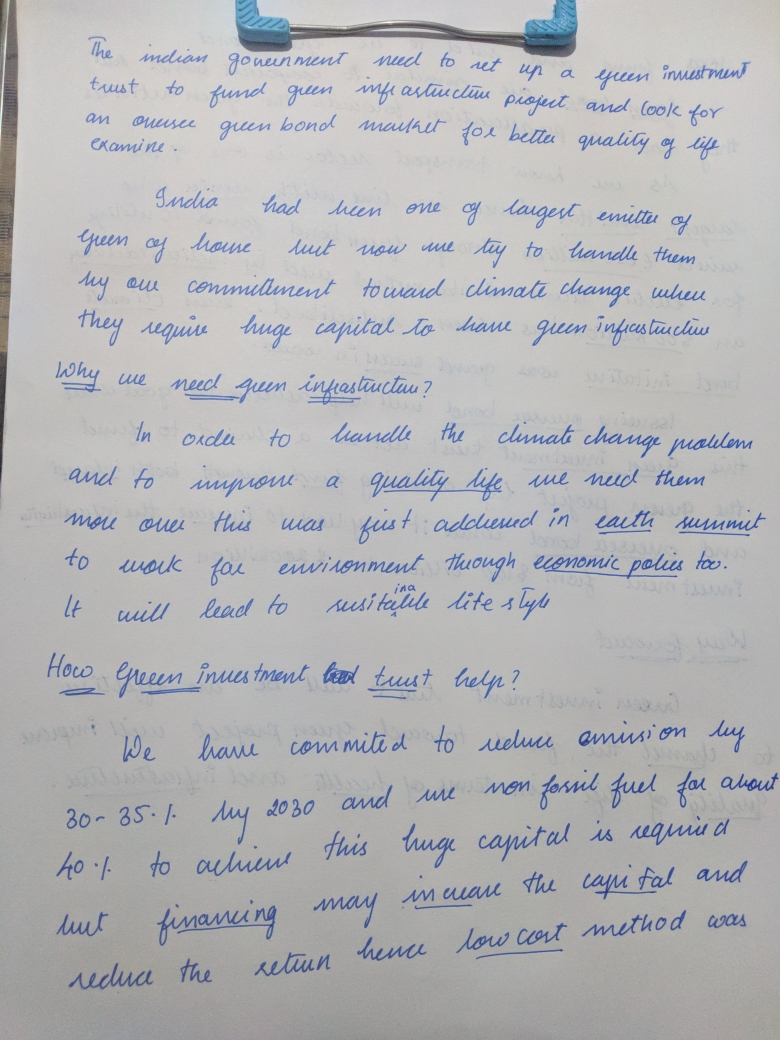 The indian government need to set up a green investment
trust to fund green infrastructure project and look for
an oversee green bond market for better quality of life
examine.
India had been one of largest emitter of
green of house but now we try to handle them
by our commitment toward climate change when
they require huge capital to have green infrastructure
Why we need green infrastructure?
In order to handle the climate change problem
and to improve a quality life we need them
more over this was first addressed in earth summit
to work for environment through economic polies too.
It will lead to susitainable life style
How Greeen investment trust help?
We have commited to reduce emission by
30-35% by 2030 and use non fossil fuel for about
40% to achieve this huge capital is required
but financing may increase the capital and
reduce the return hence low cost method was